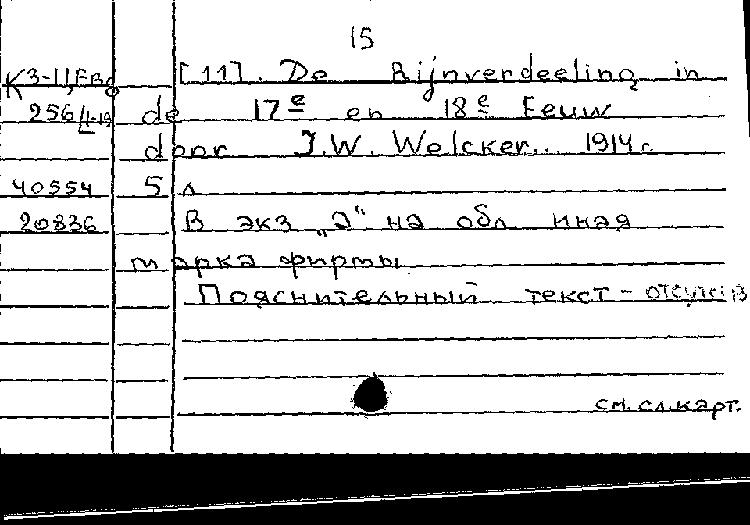 15
К3-11, Ево [11]. De Rijnverdeeling in
256/4-19 de 17e en 18e Eeuw
door J.W. Welcker.. 1914 г.
40554 5 л
20836 В экз „2“ на обл иная
марка фирмы
Пояснительный текст - отсутств
см. сл. карт.